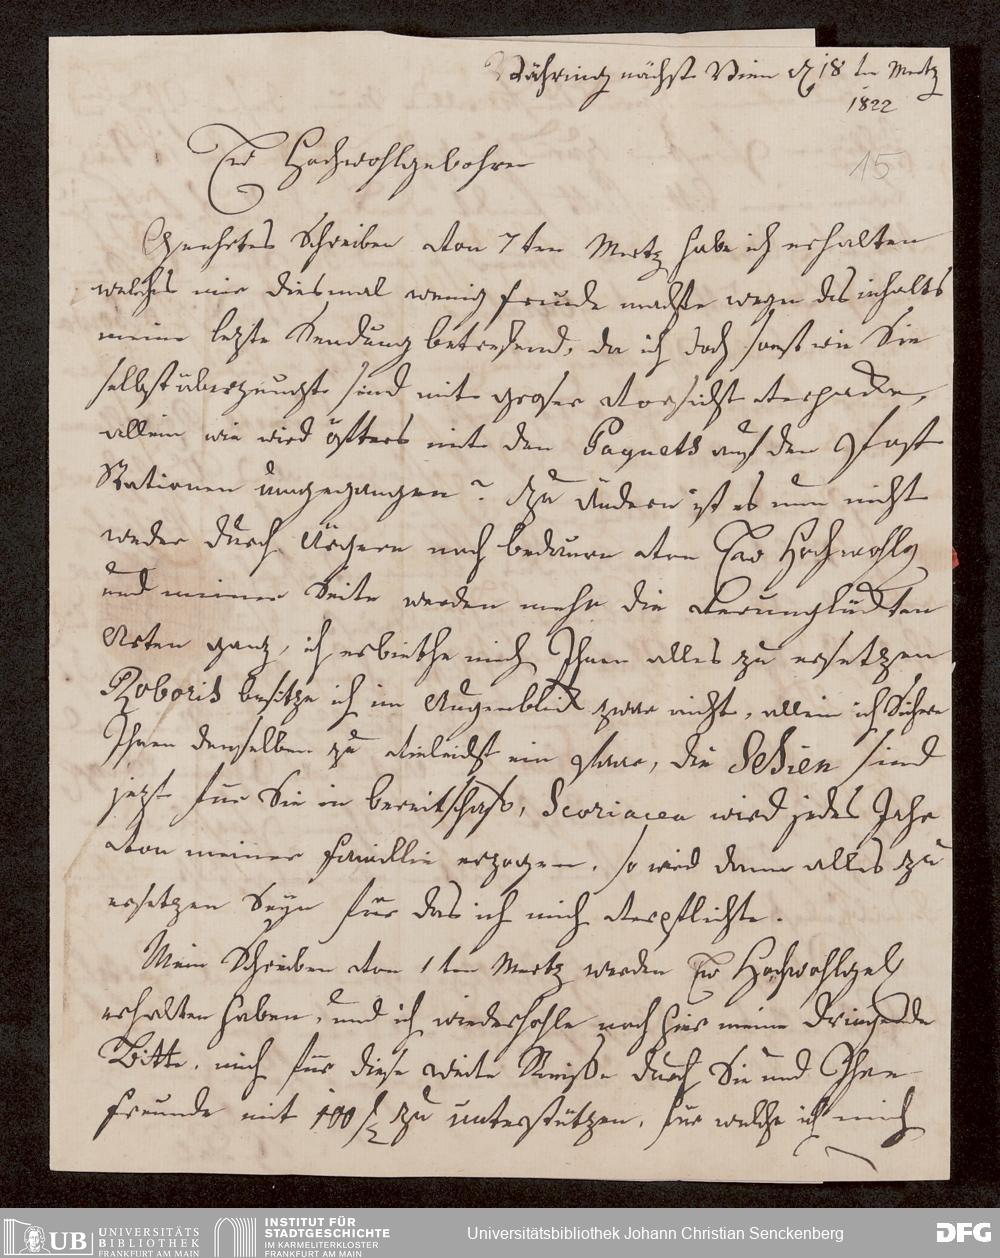 Währing nächst Wien d 18ten Mertz
1822
15
Euer Hochwohlgebohren
Geehrtes Schreiben von 7ten Mertz habe ich erhalten
welches mir diesmal wenig freude machte wegen des inhalts
meine letzte Sendung betrefend, da ich doch sonst wie Sie
selbst überzeugt sind mit groser Vorsicht verpacke,
allein wie wird öfters mit den Paquets auf den Post
Stationen umgegangen? zu ändern ist es nun nicht
weder durch Ärgern noch bedauern von Euer Hochwohlg
und meiner Seite werden mehr die Verunglückten
Arten ganz, ich erbiethe mich Ihnen alles zu ersetzen
Roboris besitze ich im Augenblick zwar nicht, allein ich
Ihnen denselben zu vieleicht ein paar, die Sesien sind
jezt für Sie in bereitschaft, Scoriacea wird jedes Jahr
von meiner familie erzogen, so wird dann alles zu
ersetzen Seyn für das ich mich verpflichte.
Mein Schreiben von 1ten Mertz werden Euer Hochwohlgeb
erhalten haben, und ich wiederhohle noch hier meine dringende
Bitte, mich für diese weite Reise durch Sie und Ihre
freunde mit 100 f zu unterstützen, für welche ich mich
UB UNIVERSITÄTS
BIBLIOTHEK
FRANKFURT AM MAIN
INSTITUT FÜR
STADTGESCHICHTE
IM KARMELITERKLOSTER
FRANKFURT AM MAIN
Universitätsbibliothek Johann Christian Senckenberg
DFG